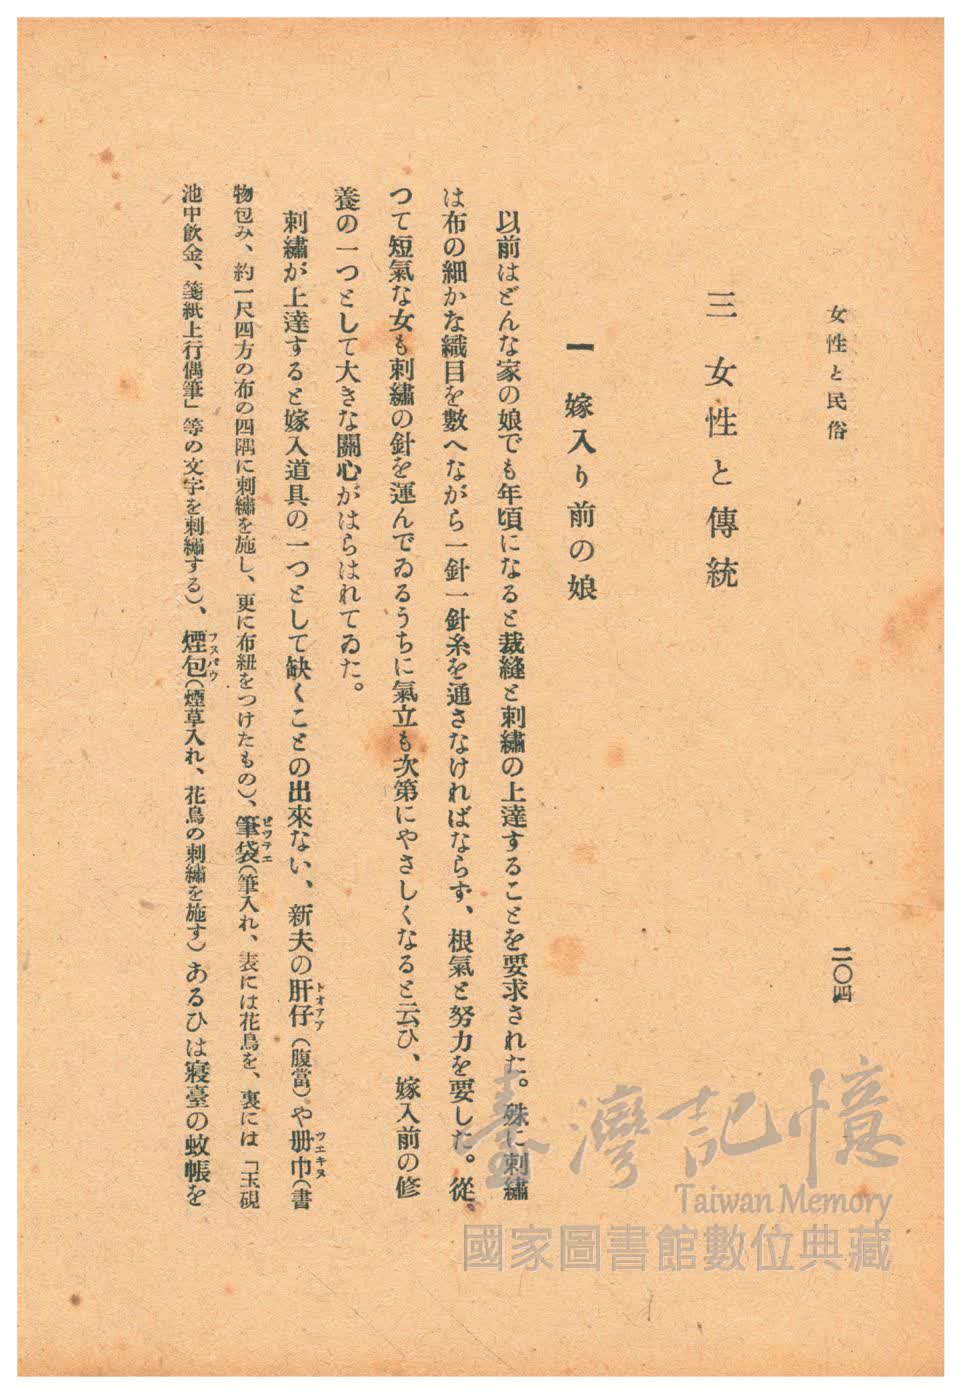 女性と民俗
二〇四
三 女性と傳統
一 嫁入り前の娘
以前はどんな家の娘でも年頃になると裁縫と刺繡の上達することを要求された。殊に刺繡
は布の細かな織目を數へながら一針一針糸を通さなければならず、根氣と努力を要した。從
つて短氣な女も刺繡の針を運んでゐるうちに氣立も次第にやさしくなると云ひ、嫁入前の修
養の一つとして大きな關心がはらはれてゐた。
刺繡が上達すると嫁入道具の一つとして缺くことの出來ない、新夫の肝仔（腹當）や册巾（書
トオアア
ツエキヌ
物包み、約一尺四方の布の四隅に刺繡を施し、更に布紐をつけたもの）、筆袋（筆入れ、表には花鳥を、裏には「玉硯
ピツテエ
池中飮金、箋紙上行偶筆」等の文字を刺繡する）、煙包（煙草入れ、花鳥の刺繡を施す）あるひは寢臺の蚊帳を
フスパウ
臺灣記憶
Taiwan Memory
國家圖書館數位典藏